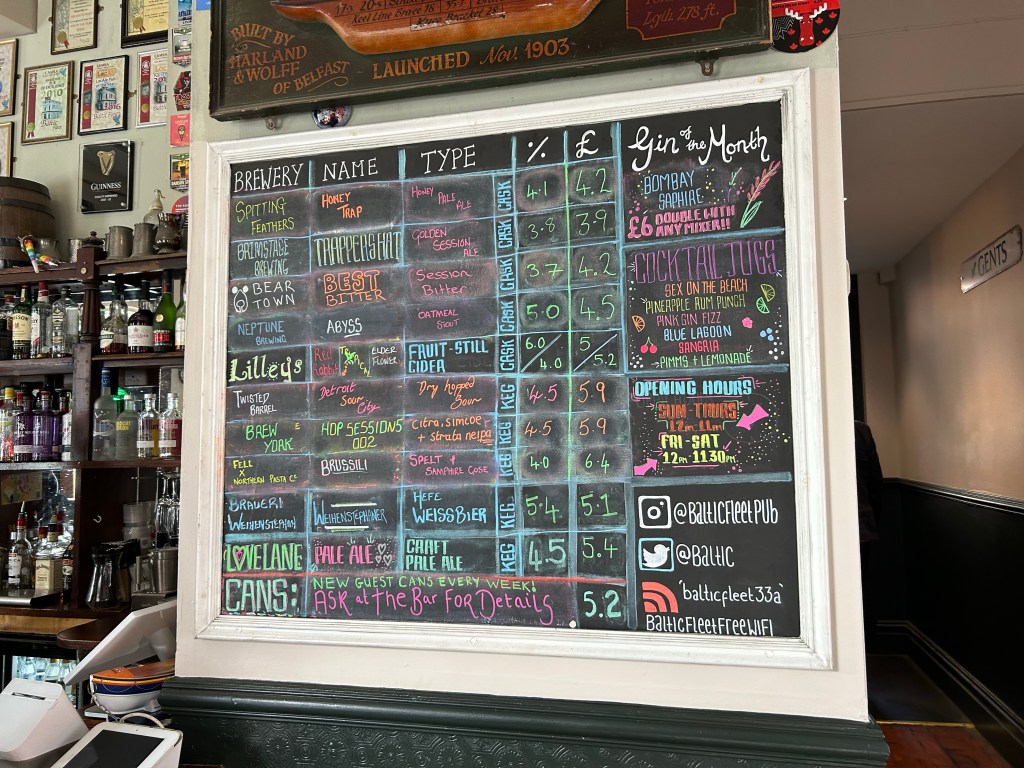 BUILT BY
HARLAND
& WOLFF
OF BELFAST
LAUNCHED Nov. 1903
Lgth 278 ft.
GUINNESS
GENTS
BREWERY NAME TYPE % £
SPITTING FEATHERS HONEY TRAP HONEY PALE ALE CASK 4.1 4.2
BRIMSTAGE BREWING TRAPPERS HAT GOLDEN SESSION ALE CASK 3.8 3.9
BEAR TOWN BEST BITTER SESSION BITTER CASK 3.7 4.2
NEPTUNE BREWING ABYSS OATMEAL STOUT CASK 5.0 4.5
Lilley's Red Rabbit ELDER FLOWER FRUIT-STILL CIDER CASK 6.0/4.0 5/5.2
TWISTED BARREL Detroit Sour City Dry hopped Sour KEG 4.5 5.9
BREW YORK HOP SESSIONS 002 Citra, simcoe + strata neipa KEG 4.5 5.9
FELL X NORTHERN PASTA Co BRUSSILI SPELT + SAMPHIRE GOSE KEG 4.0 6.4
BRAUEREI WEIHENSTEPHAN WEIHENSTEPHANER HEFE WEISSBIER KEG 5.4 5.1
LOVELANE PALE ALE CRAFT PALE ALE KEG 4.5 5.4
CANS: NEW GUEST CANS EVERY WEEK!
ASK at the BAR FOR DETAILS 5.2
Gin of the Month
BOMBAY
SAPHIRE
£6 DOUBLE WITH
ANY MIXER!!
COCKTAIL JUGS
SEX ON THE BEACH
PINEAPPLE RUM PUNCH
PINK GIN FIZZ
BLUE LAGOON
SANGRIA
PIMMS + LEMONADE
OPENING HOURS
SUN-THURS
12PM-11PM
FRI-SAT
12PM 11.30PM
@BALTICFLEETPUB
@BALTIC
'balticfleet33a'
BALTICFLEETFREEWIFI